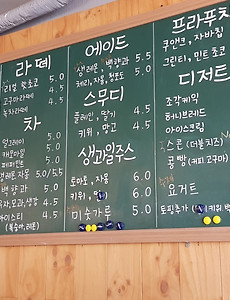 라떼
리얼 핫초코 5.0
고구마라떼 4.5
녹차라떼 4.5
차
얼그레이 5.0
캐모마일 5.0
페퍼민트 5.0
레몬, 자몽 5.0/5.5
백향과 5.0
유자, 모과, 생강 4.5
아이스티 4.5
(복숭아, 레몬)
에이드
생레몬, 백향과 5.5
체리, 자몽, 청포도 5.5
스무디
플레인, 딸기 4.5
키위, 망고 4.5
생과일주스
토마토, 자몽 6.0
키위, 6.0
미숫가루 5.0
프라푸치
쿠앤크, 자바칩
그린티, 민트 초코
디저트
조각케익
허니브레드
아이스크림
스콘 (더블치즈)
콩빵 (커피 고구마)
수제
요거트
토핑추가